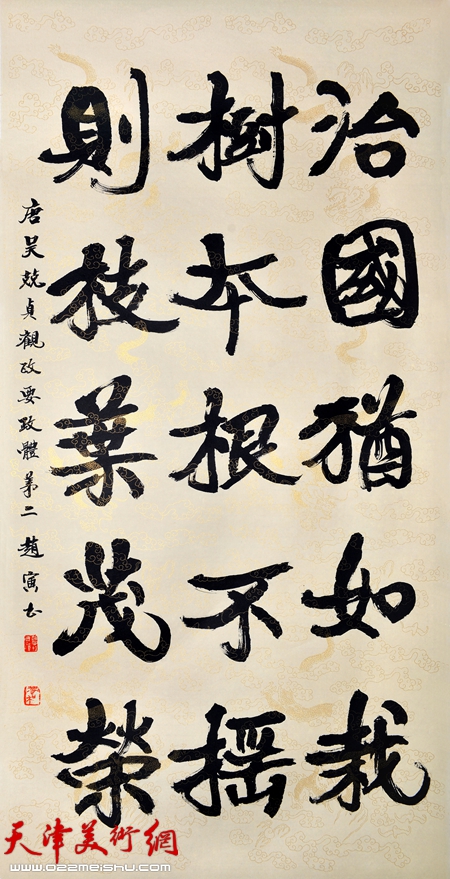 治國猶如栽
樹本根不摇
則枝葉茂榮
唐吴兢貞觀政要政體第二 趙寅书
天津美術網
www.022meishu.com